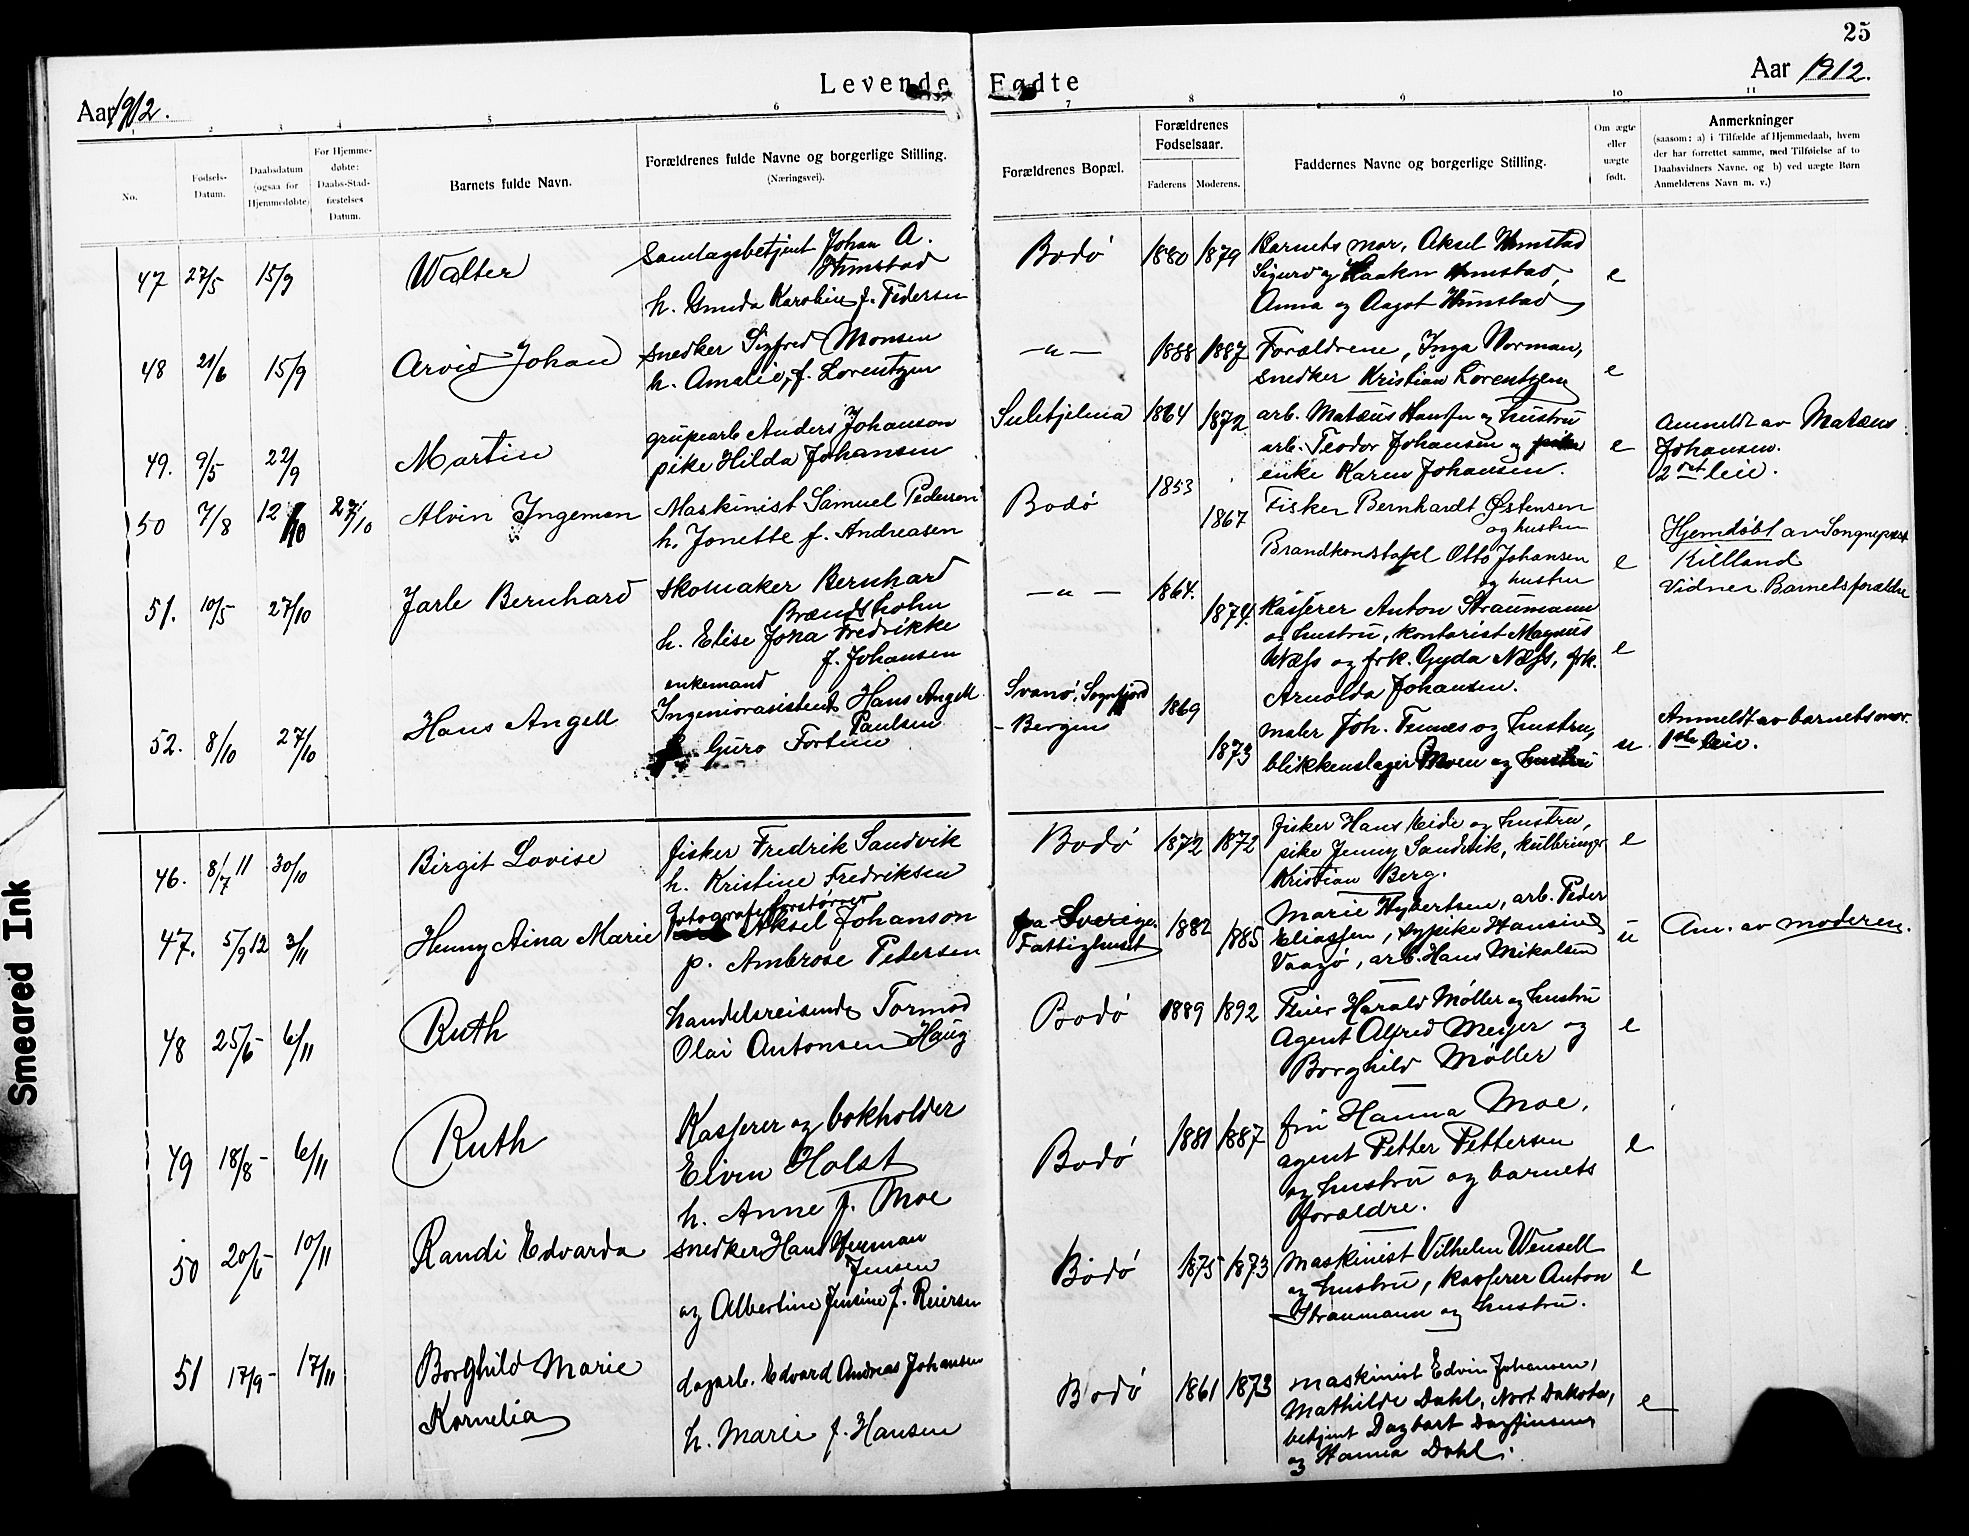 25
Levende Fødte
Aar 1912.
Aar 1912.
1 2 3 4 5 6 7 8 9 10 11
No.
Fødsels-
Datum.
Daabsdatum
(ogsaa for
Hjemmedøbte)
For Hjemme-
døbte:
Daabs-Stad-
fæstelses
Datum.
Barnets fulde Navn.
Forældrenes fulde Navne og borgerlige Stilling.
(Næringsvei).
Forældrenes Bopæl.
Forældrenes
Fødselsaar.
Faderens Moderens.
Faddernes Navne og borgerlige Stilling.
Om ægte
eller
uægte
født.
Anmerkninger
(saasom: a) i Tilfælde af Hjemmedaab, hvem
der har forrettet samme, med Tilføielse af to
Daabsvidners Navne, og b) ved uægte Børn
Anmelderens Navn m. v.)
47 27/5 15/9 Walter
Johan A.
Himstad
h. Karoline f. Pedersen
Bodø 1880 1879
Barnets mor, Aksel Himstad
Sigurd og Haakon Himstad,
Anna og Aagot Himstad
e
48 21/6 15/9 Arvid Johan
snedker Sigfred Monsen
h. Amalie, f. Lorentzen
—"— 1888 1887
Forældrene, Inga Norman,
snedker Kristian Lorentzen
e
49. 9/5 22/9 Martin
grubearb Anders Johanson
pike Hilda Johansen
Sulitjelma 1864 1872
arb. Matæus Hansen og hustru
arb. Teodor Johansen og
enke Karen Johansen.
e
Anmeldt av Matæus
Johansen.
2det leie.
50 7/8 12/10 27/10 Alvin Ingeman
Maskinist Samuel Pedersen
h. Jonette f. Andreasen
Bodø 1853 1867
Fisker Bernhardt Østensen
og hustru
Brandkonstabel Otto Johansen
og hustru
e
Hjemdøbt av Sognepræst
Killand
Vidner Barnets forældre
51. 10/5 27/10 Jarle Bernhard
skomaker Bernhard
Brændsholm
h. Elise Jona Fredrikke
f. Johansen
—"— 1864. 1874.
Kasserer Anton Straumann
og hustru, kontorist Magnus
Næss og frk. Gyda Næss, frk.
Arnolda Johansen.
e
52. 8/10 27/10 Hans Angell
enkemand
Ingeniørasistent Hans Angell
Paulsen
Guro Fortun
Svanø, Sognfjord
- Bergen
1869 1873
maler Joh. Tennes og hustru,
blikkenslager Moen og hustru
u
Anmeldt av barnets mor.
1ste leie.
46. 8/7 11 30/10 Birgit Lovise
fisker Fredrik Sandvik
h. Kristine Fredriksen
Bodø 1872 1872
fisker Hans Eide og hustru,
pike Jenny Sandvik, kulbringer
Kristian Berg.
e
47. 5/9 12 3/11 Henny Aina Marie
fotografiforstørrer
Aksel Johanson
p. Ambrose Pedersen
fra Sverige.
Fattighuset
1882 1885
Marie Hybertsen, arb. Peder
Eliassen, sypike Hansine
Vaagø, arb. Hans Mikalsen
u
An. av moderen.
48 25/6- 6/11 Ruth
handelsreisende Tormod
Olai Antonsen Haug
Bodø 1889 1892
Feier Harald Møller og hustru
Agent Alfred Meyer og
Borghild Møller
e
49 18/8- 6/11 Ruth
Kasserer og bokholder
Elvin Holst
h. Anne f. Moe
Bodø 1881 1887
fru Hanna Moe,
agent Petter Pettersen
og hustru og barnets
forældre.
e
50 20/6- 10/11 Randi Edvarda
snedker Hans Herman
Jensen
og Albertine Jensine f. Reiersen
Bodø 1875 1873
Maskinist Vilhelm Wensell
og hustru, kasserer Anton
Straumann og hustru.
e
51 17/9- 17/11 Borghild Marie
Kornelia
dagarb. Edvard Andreas Johansen
h. Marie f. Hansen
Bodø 1861 1873
maskinist Edvin Johansen,
Mathilde Dahl, Nort Dakota,
betjent Dagbart Dagfinsen
og Hanna Dahl.
e
Smeared Ink